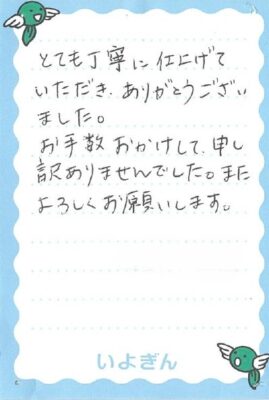 とても丁寧に仕上げて
いただき、ありがとうござい
ました。
お手数おかけして、申し
訳ありませんでした。また
よろしくお願いします。
いよぎん